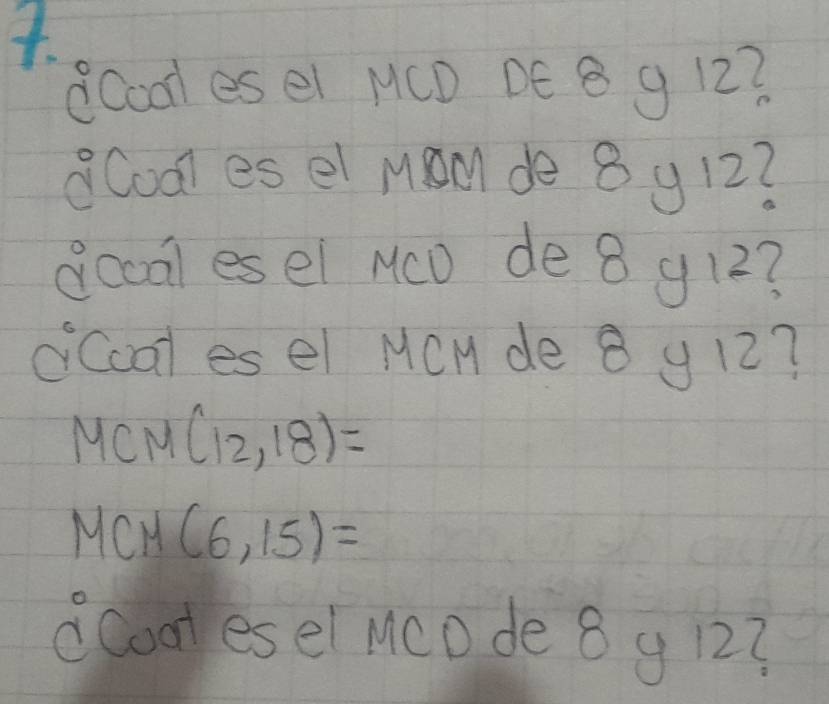 7.
¿Cual es el MCD DE 8 y 12?
¿Cuál es el MCM de 8 y 12?
¿Cuál es el MCD de 8 y 12?
¿Cual es el MCM de 8 y 12?
MCM(12,18)=
MCM(6,15)=
¿Cual es el MCD de 8 y 12?